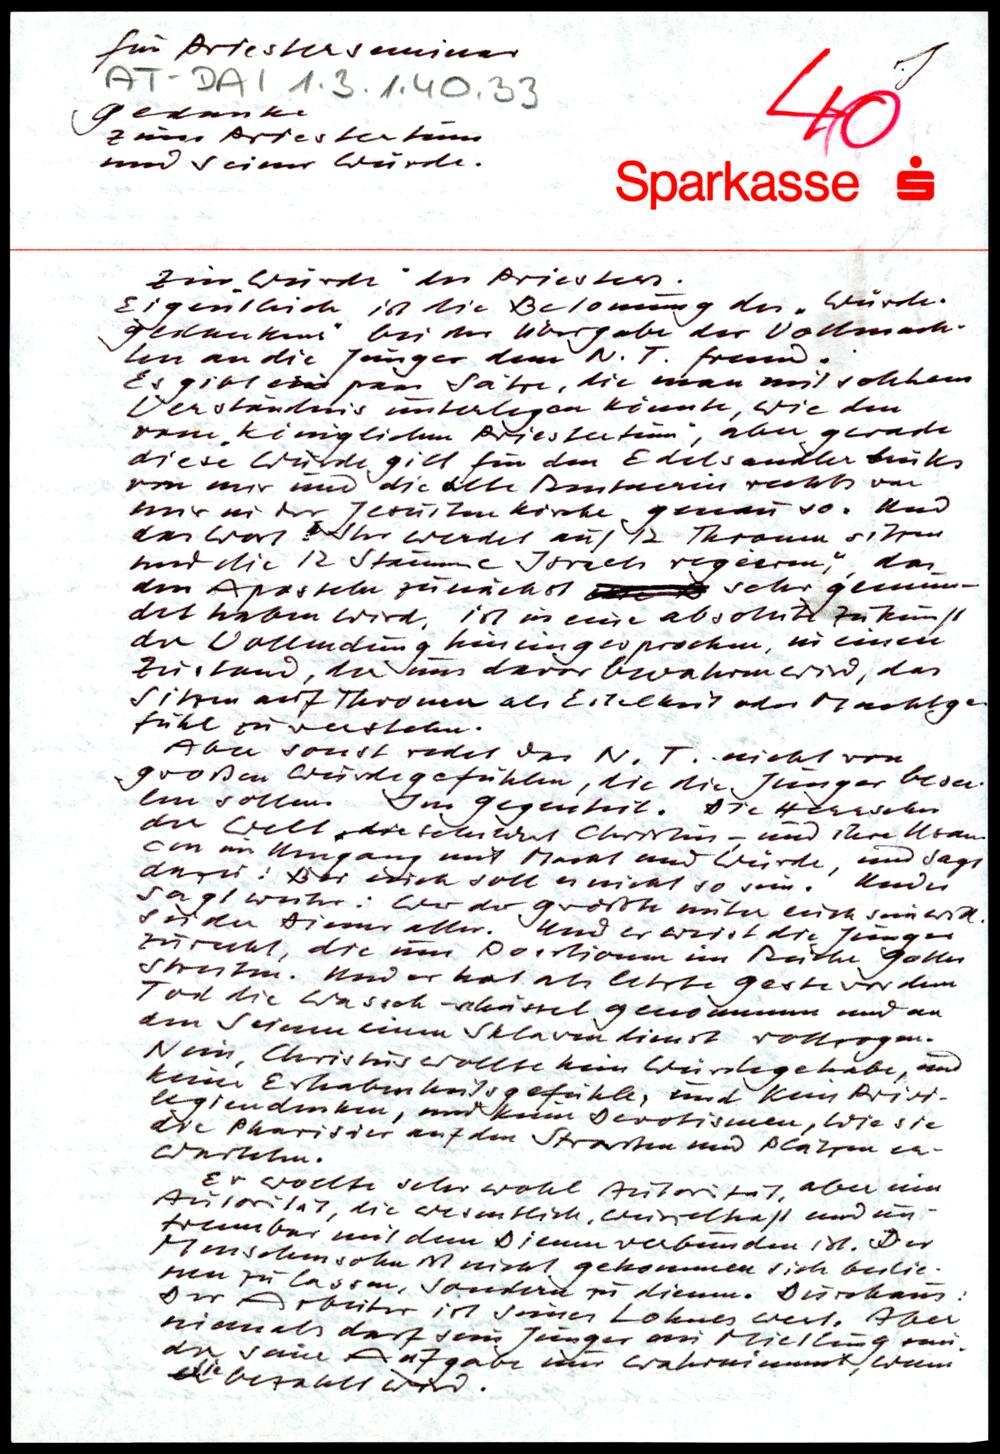 für Priesterseminar
AT-DAI 1.3.1.40.33
40
Gedanke
zum Priestertum
und seiner Würde.
Sparkasse
Zur „Würde" des Priesters.
Eigentlich ist die Betonung des „Würde-
gedankens" bei der Übergabe der Vollmach-
ten an die Jünger dem N. T. fremd.
Es gibt ein paar Sätze, die man mit solchem
Verständnis unterlegen könnte, wie den
vom „königlichen Priestertum", aber gerade
diese Würde gilt für den Edelsandler links
von mir und die alte Rentnerin rechts von
mir in der Jesuitenkirche genau so. Und
das Wort „Ihr werdet auf 12 Thronen sitzen
und die 12 Stämme Israels regieren", das
den Aposteln zunächst sehr gemun-
det haben wird, ist in eine absolute Zukunft
der Vollendung hineingesprochen, in einen
Zustand, der uns davor bewahren wird, das
Sitzen auf Thronen als Eitelkeit oder Machtge-
fühl zu verstehen.
Aber sonst redet das N. T. nicht von
großen Würdegefühlen, die die Jünger besee-
len sollen. Im Gegenteil. Die Herrscher
der Welt, die schildert Christus, und ihre Usan-
cen im Umgang mit Macht und Würde, und sagt
dazu: Bei euch soll es nicht so sein. Und er
sagt weiter: Wer der größte unter euch sein will,
sei der Diener aller. Und er weist die Jünger
zurecht, die um Positionen im Reiche Gottes
streiten. Und er hat als letzte Geste vor dem
Tod die Waschschüssel genommen und an
den Seinen einen Sklavendienst vollzogen.
Nein, Christus wollte kein Würdegehabe, und
keine Erhabenheitsgefühle, und kein Privi-
legiendenken, und keine Devotismen, wie sie
die Pharisäer auf den Straßen und Plätzen er-
warteten.
Er wollte sehr wohl Autorität, aber eine
Autorität, die wesentlich, wurzelhaft und un-
trennbar mit dem Dienen verbunden ist. Der
Menschensohn ist nicht gekommen sich bedie-
nen zu lassen, sondern zu dienen. Durchaus:
Der Arbeiter ist seines Lohnes wert. Aber
niemals darf sein Jünger ein Mietling sein,
der seine Aufgabe nur wahrnimmt, wenn
sie bezahlt wird.